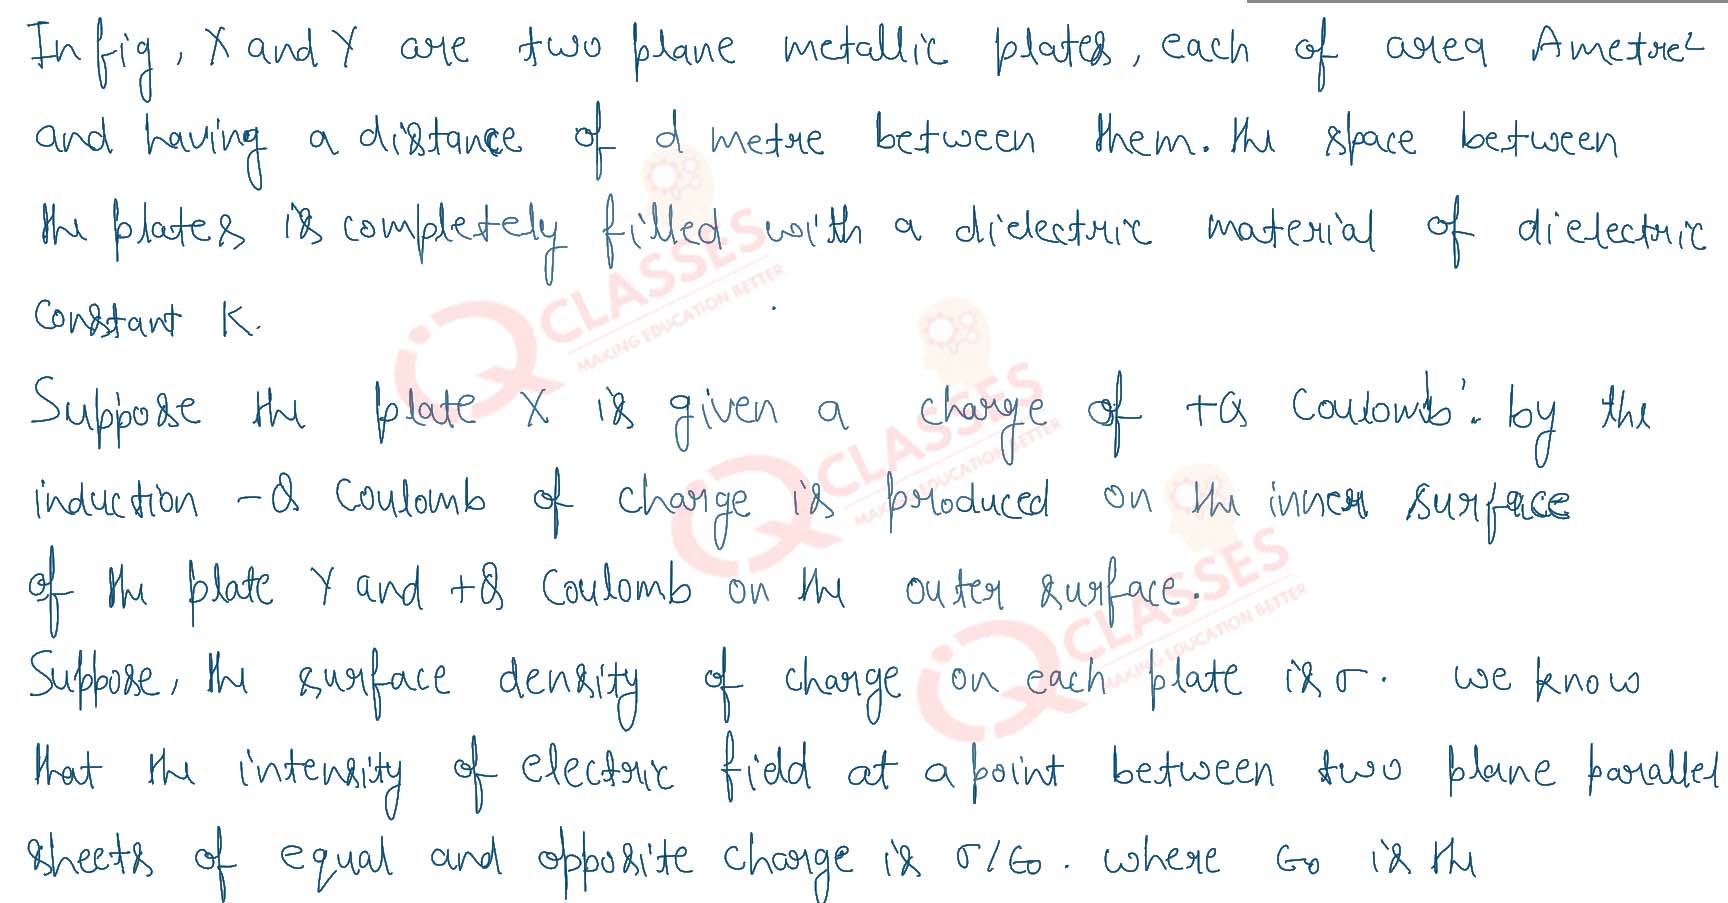 In fig, X and Y are two plane metallic plates, each of area A metre²
and having a distance of d metre between them. the space between
the plates is completely filled with a dielectric material of dielectric
constant K.
Suppose the plate X is given a charge of +Q Coulomb. by the
induction -Q Coulomb of charge is produced on the inner surface
of the plate Y and +Q Coulomb on the outer surface.
Suppose, the surface density of charge on each plate is σ. we know
that the intensity of electric field at a point between two plane parallel
sheets of equal and opposite charge is σ/ϵ₀. where ϵ₀ is the
IQ CLASSES
MAKING EDUCATION BETTER
IQ CLASSES
MAKING EDUCATION BETTER
IQ CLASSES
MAKING EDUCATION BETTER